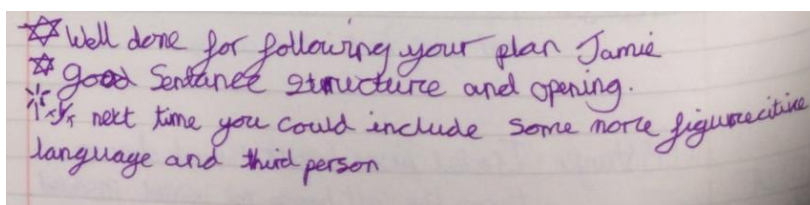 Well done for following your plan Jamie
good Sentance structure and opening.
next time you could include some more figurecitive
language and third person